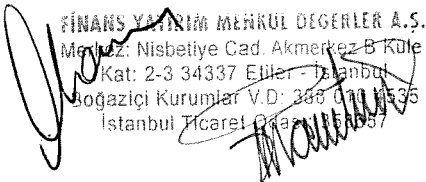 FİNANS YATIRIM MENKUL DEĞERLER A.Ş.
Merkez: Nisbetiye Cad. Akmerkez B Kule
Kat: 2-3 34337 Etiler - İstanbul
Boğaziçi Kurumlar V.D: 388
İstanbul Ticaret